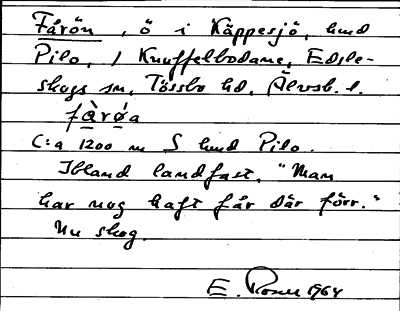 Fårön, ö i Käppesjö, hmd
Pilo, 1 Knuffelbodane, Edsle-
skogs sn, Tössbo hd, Älvsb. l.
fàrǿa
C:a 1200 m S hmd Pilo.
Ibland landfast. "Man
har nog haft får där förr."
Nu skog.
E. 1964